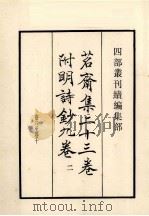 四部叢刊續編集部
茗齋集二十三卷
附明詩鈔九卷
二